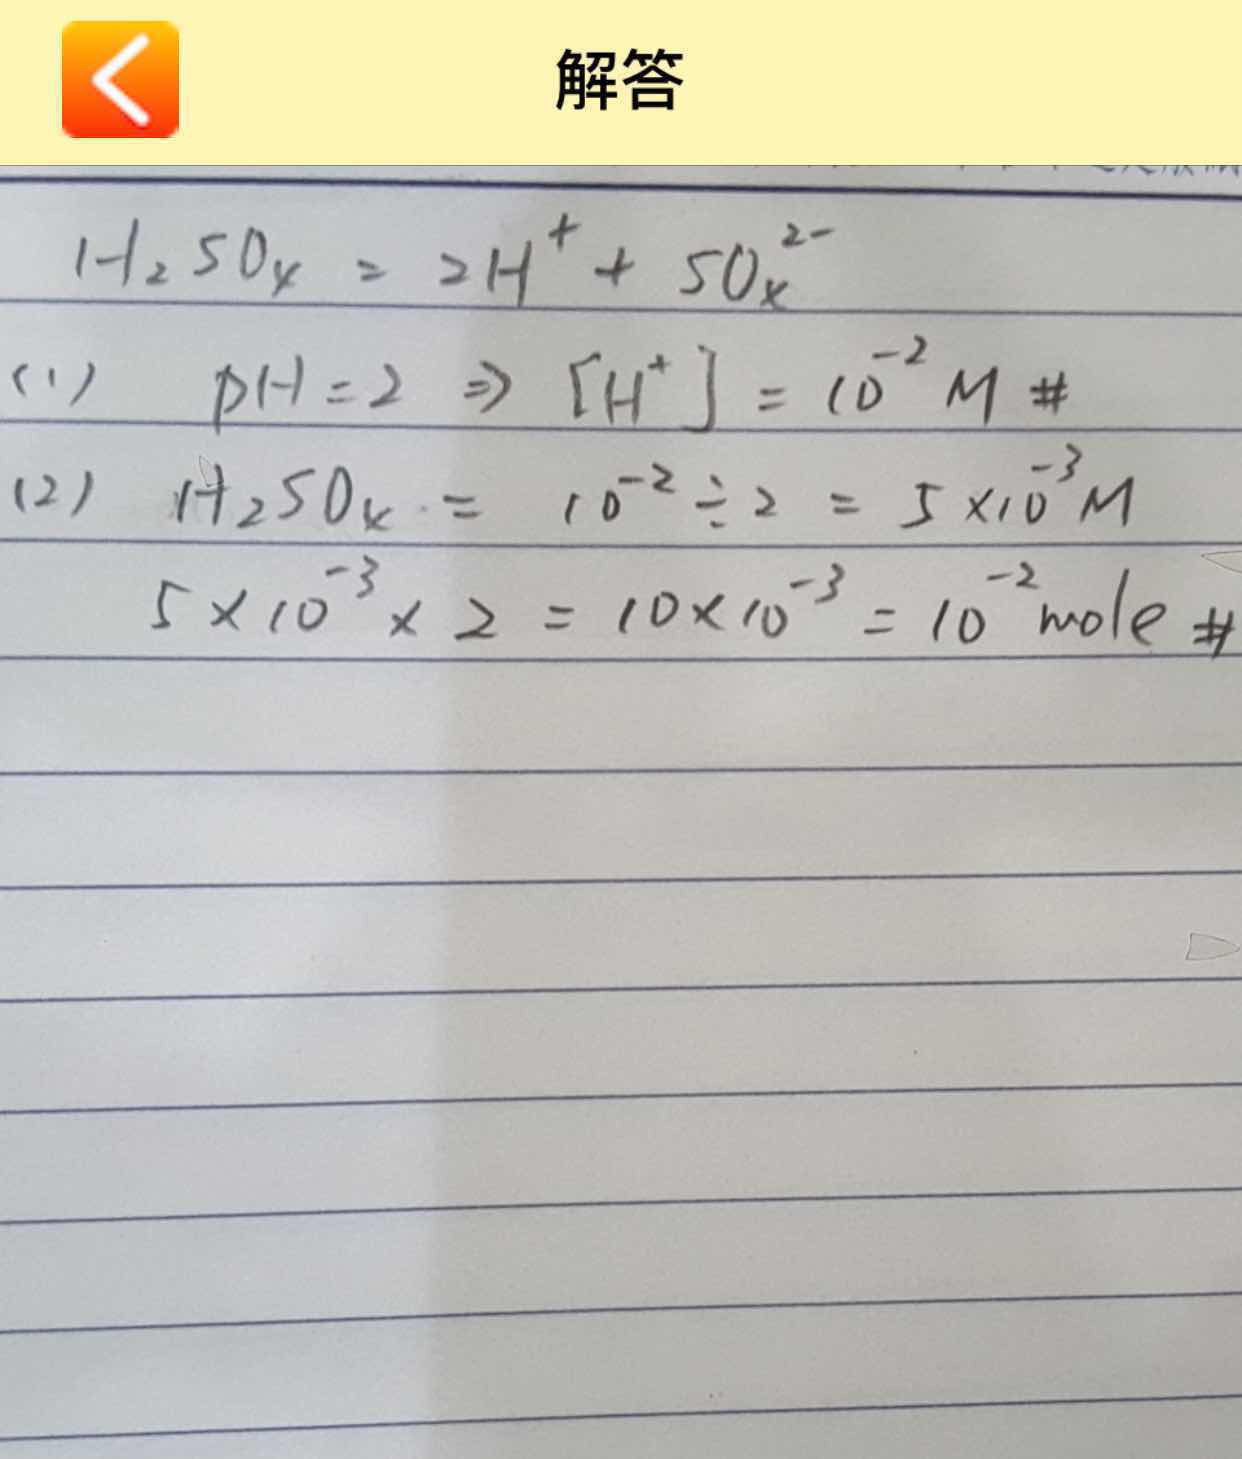 解答
H₂SO₄ = 2H⁺ + SO₄²⁻
(1) pH = 2 ⇒ [H⁺] = 10⁻² M #
(2) H₂SO₄ = 10⁻² ÷ 2 = 5 × 10⁻³ M
5 × 10⁻³ × 2 = 10 × 10⁻³ = 10⁻² mole #